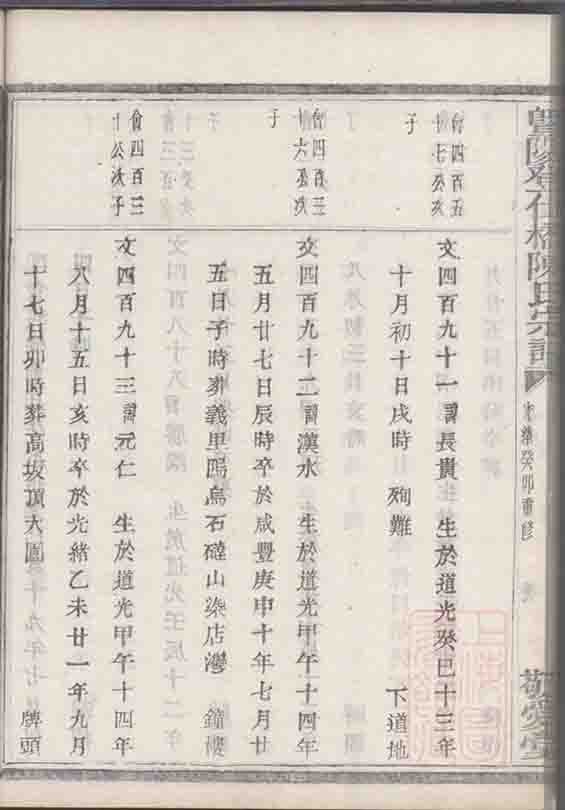 暨陽孝仕橋陳氏宗譜
光緒癸卯重修
敬愛堂
會四百五
十七公次
子
文四百九十一 諱長貴 生於道光癸巳十三年
十月初十日戌時 殉難 下道地
會四百三
十六公次
子
文四百九十二 諱漢水 生於道光甲午十四年
五月廿七日辰時卒於咸豐庚申十年七月廿
五日子時葬義里塢烏石礳山染店灣 鐘樓
會四百三
十公次子
文四百九十三 諱元仁 生於道光甲午十四年
八月十五日亥時卒於光緒乙未廿一年九月
十七日卯時葬高坂頂大圓 牌頭